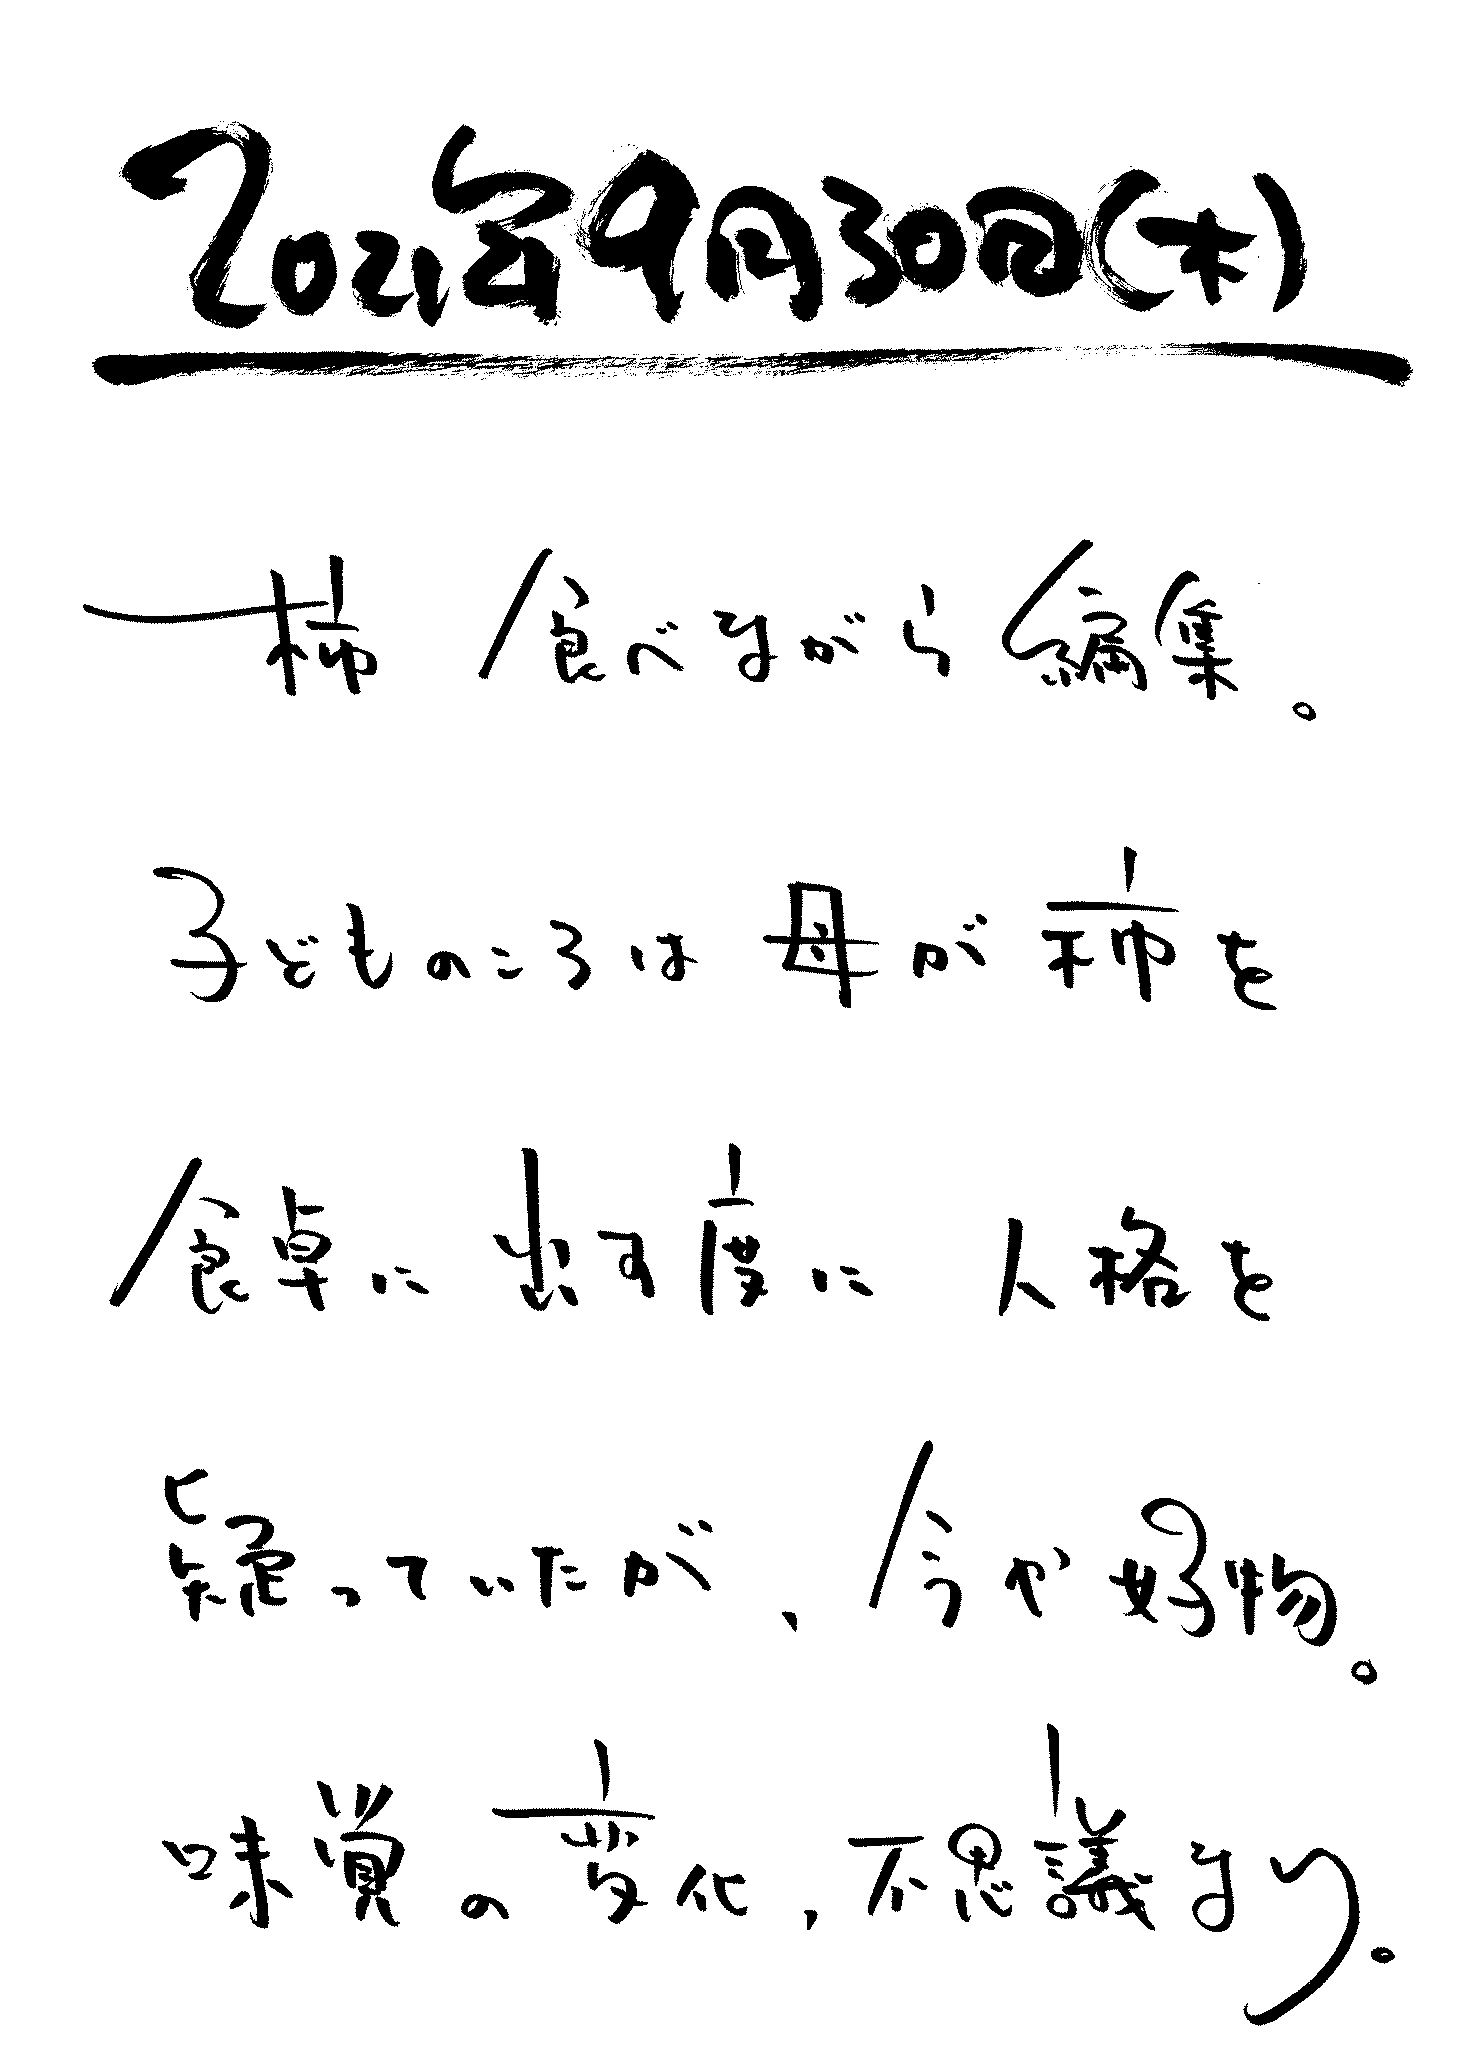 2021年9月30日(木)
柿食べながら編集。
子どものころは母が柿を
食卓に出す度に人格を
疑っていたが、今や好物。
味覚の変化、不思議なり。